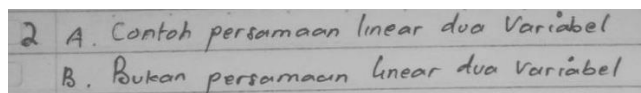 2 A. Contoh persamaan linear dua Variabel
B. Bukan persamaan linear dua variabel